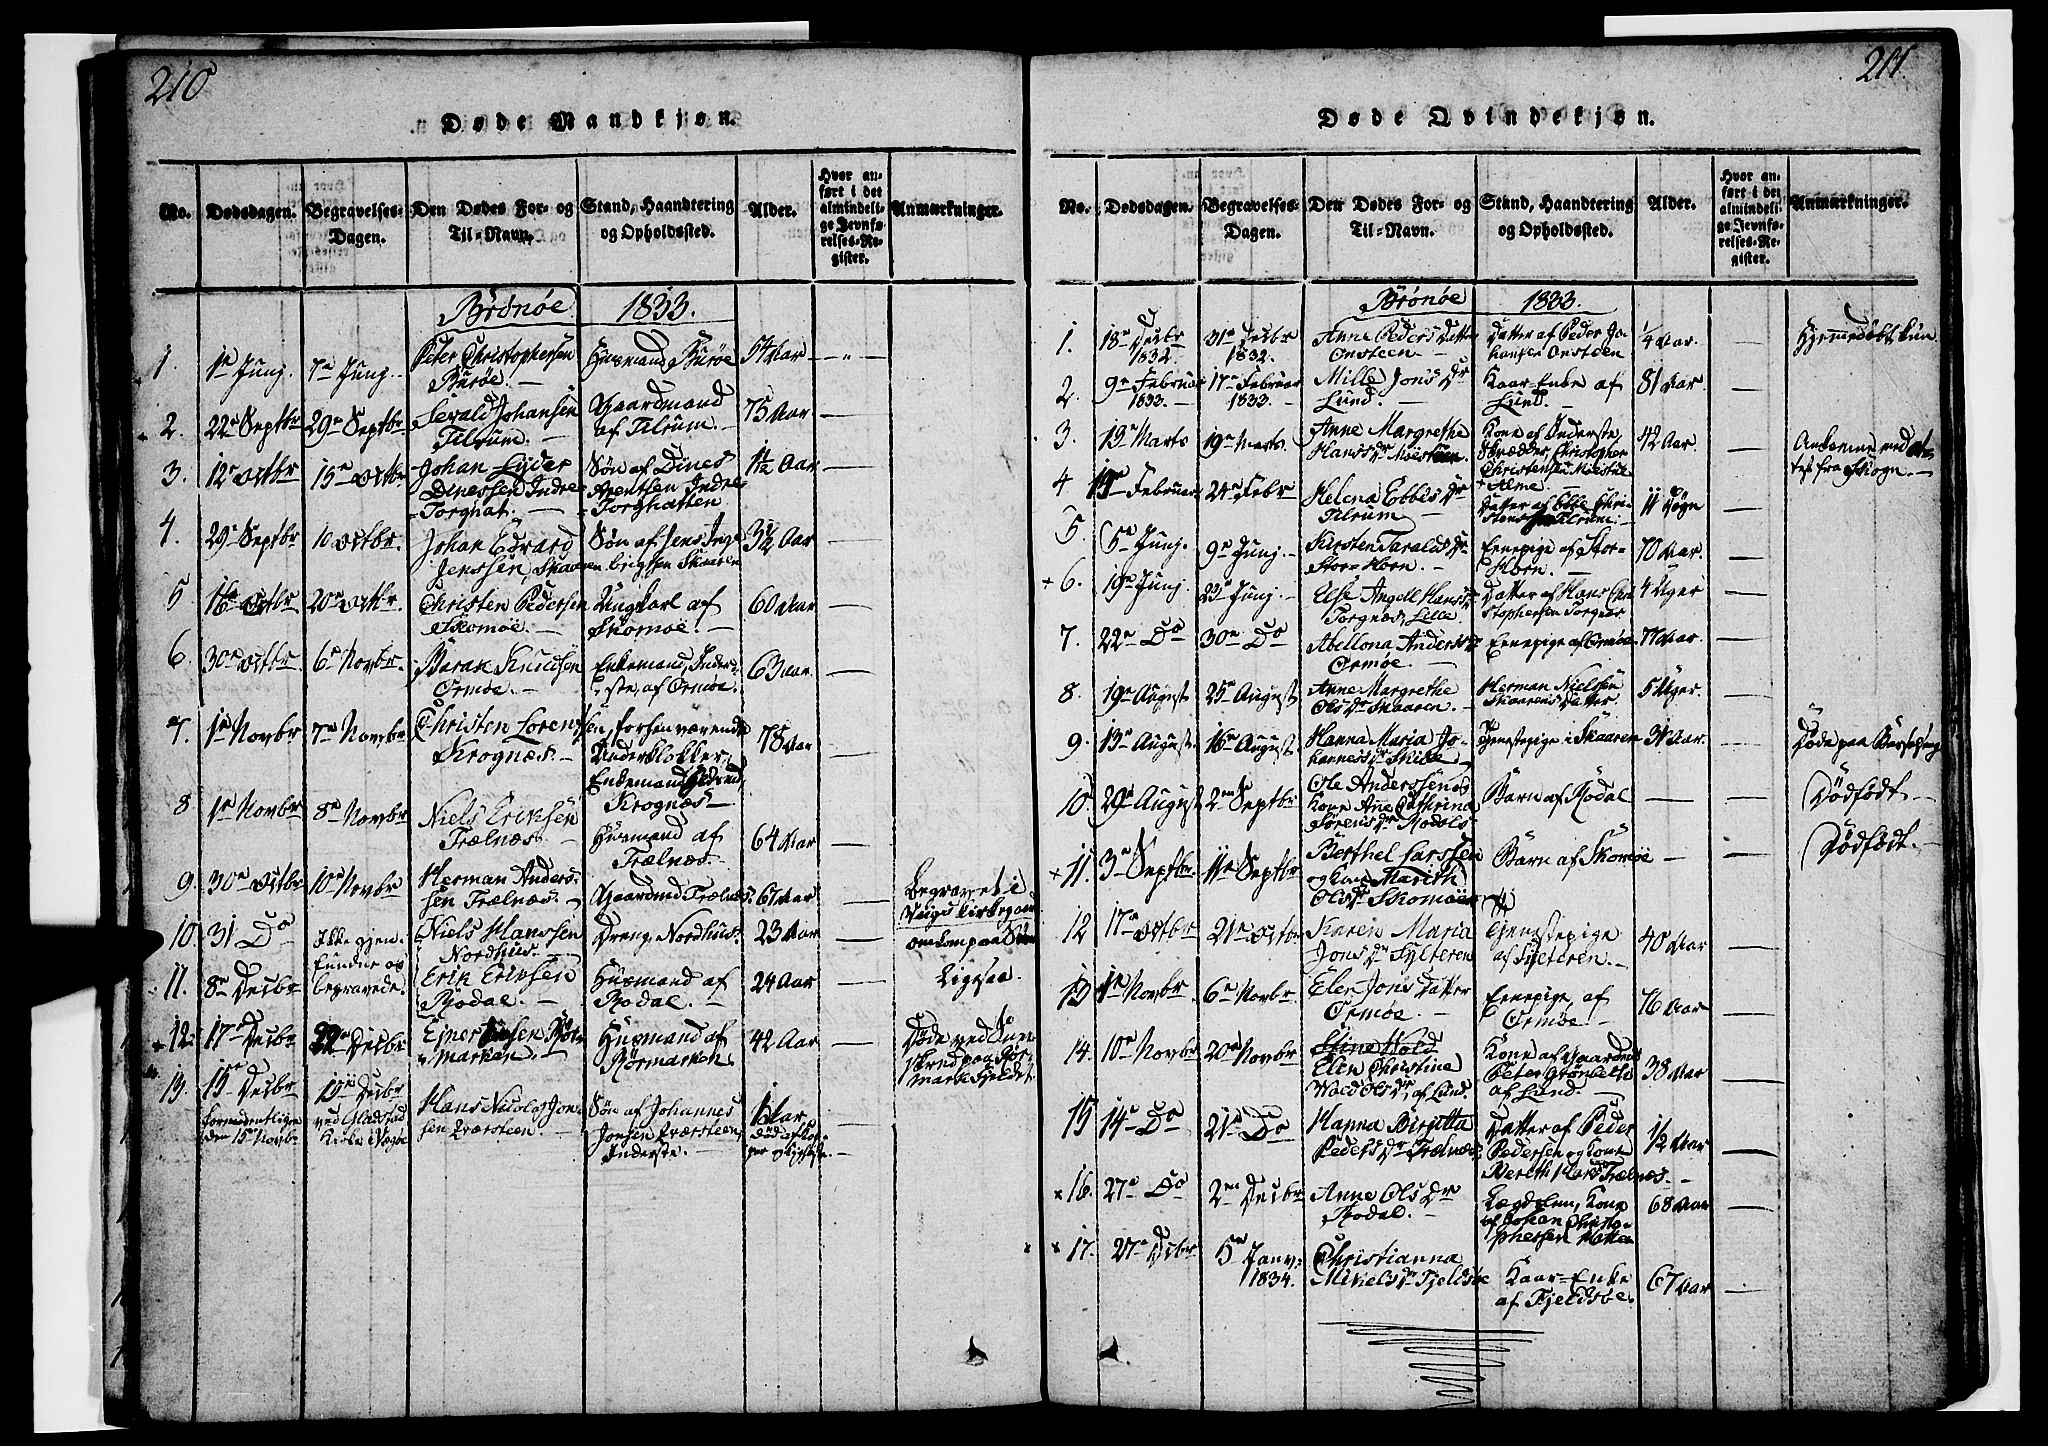 210
Døde Mandkjøn.
No.
Dødsdagen.
Begravelses-
Dagen.
Den Dødes For- og
Til-Navn.
Stand, Haandtering
og Opholdssted.
Alder.
Hvor an-
ført i det
almindeli-
ge Jevnfø-
relses-Re-
gister.
Anmærkninger.
Brønøe 1833.
1. 1e Junj. 7de Junj.
Peter Christophersen
Burøe.
Husmand, Burøe
54 Aar
2. 22e Septbr 29e Septbr
Sevald Johansen
Tilrum.
Gaardmand
af Tilrum.
75 Aar
3. 12e Octbr 15e Octbr
Johan Lyder
Dinessen Indre
Torghat.
Søn af Dines
Arentsen Indre
Torghatten
4. 29e Septbr 10 Octbr.
Johan Edvard
Jenssen, Skaaren
Søn af Jens Inge
brigtsen Skaaren
3½ Aar
5 16e Octbr 20e Octbr.
Christen Pedersen
Skomøe.
Ungkarl af
Skomøe.
60 Aar
6. 30e Octbr 6e Novbr.
Barak Knudsen
Ormøe.
Enkemand, Inder-
ste, af Ormøe.
63 Aar
7. 1e Novbr 7de Novbr
Christen Lorenssen,
Krognæs.
forhenværende
Underklokker,
Enkemand
Krognæs
78 Aar
8. 1e Novbr 8e Novbr
Niels Eriksen
Trælnæs.
Husmand af
Trælnæs.
64 Aar
9. 30e Octbr 10e Novbr
Herman Anders-
sen Trælnæs.
Gaardmd Trælnæs.
67 Aar
Begravet i
Veigs Kirkegaard
10. 31 Do
Ikke gjen-
fundne og
begravede.
Niels Hanssen
Nordhus.
Dreng, Nordhus.
23 Aar
omkom paa Søen
11. 8de Decbr
Erik Eriksen
Rodal.
Husmand af
Rodal.
24 Aar
Ligesaa.
12. 17e Decbr 22e Decbr
Marken.
Husmand af
Rørmarken.
42 Aar
Døde ved
13. 15e Decbr
formodentligen
den 15de Novbr
19e Decbr
ved Gladstad
Kirke i Vægøe
Hans Nicolaj Jon-
sen Tværsteen.
Søn af Johannes
Jonsen Tværsteen,
Inderste.
211.
Døde Qvindekjøn.
No.
Dødsdagen.
Begravelses-
Dagen.
Den Dødes For- og
Til-Navn.
Stand, Haandtering
og Opholdssted.
Alder.
Hvor an-
ført i det
almindeli-
ge Jevnfø-
relses-Re-
gister.
Anmærkninger.
Brønøe 1833.
1. 18e Decbr
1832.
31e Decbr
1832.
Anne Peders Datter
Onsteen.
Datter af Peder Jo-
hansen Onsteen
¼ Aar.
Hjemmedøbt kun
2. 9e Februar
1833.
17e Februar
1833.
Mille Jons Dr
Lund.
Kaar-Enke af
Lund.
81 Aar
3. 19e Marts
Anne Margrethe
Hans Dr
Kone af Inderste,
Skredder, Christopher
Christensen
42 Aar.
4 24e Febr
Helena Ebbes Dr
Tilrum
Datter af Ebbe Chri-
stens Tilrum.
11 Døgn
5. 5e Junj. 9e Junj.
Kirsten Taralds Dr
Stor-Horn.
Ernepige af Stor-
Horn.
70 Aar.
6. 19e Junj 23e Junj.
Else Angell Hans Dr
Torgnes, Lille.
Datter af Hans Chri
stophersen Torgnes
4 Uger
7. 22e Do 30e Do
Abellona Anders Dr
Ormøe.
Ernepige af Ormøe
77 Aar.
8. 19e August 25e August
Anne Margrethe
Ols Dr Skaaren.
Herman Nielssen
Skaarens Datter.
5 Uger.
9. 13e August 16e August
Hanna Maria Jo-
hannes Dr Skille.
Tjenestepige i Skaaren
Døde paa Barselseng
10. 29e August 2en Septbr
Ole Anderssens
Kone Ane Cathrina
Sørens Dr
Barn af Rodal
Dødfødt
11. 3e Septbr. 11e Septbr
Berthel Larssen
og Kone Marith
Ols Dr Skomøe
Barn af Skomøe
Dødfødt.
12 17e Octbr 21e Octbr
Karen Maria
Jons Dr Tylteren
Tjenestepige
af Tylteren.
40 Aar
13 1e Novbr 6e Novbr
Elen Jons Datter
Ormøe.
Ernepige, af
Ormøe
76 Aar
14. 10e Novbr 20e Novbr
Elen Christine
Wold Ols Dr, af Lund.
Kone af Gaardmd
Peter Grønbeck
af Lund.
38 Aar
15 14e Do 21e Do
Hanna Birgitta
Peders Dr Trælnæs
Datter af Peder
Pedersen og Kone
Bereth Hans Dr Trælnæs.
1/2 Aar
16. 27e Do 2en Decbr
Anne Ols Dr
Rodal.
Lægdslem, Kone
af Johan Christo-
phersen
68 Aar
17. 27e Decbr 5e Janv.
1834.
Christianna
Mikels Dr Fjeldsøe
Kaar-Enke
af Fjeldsøe.
67 Aar